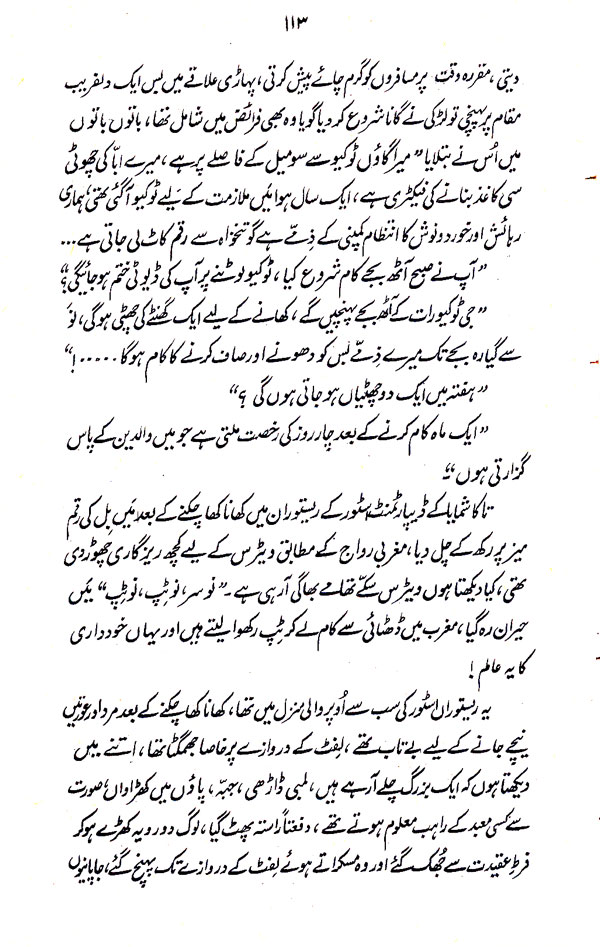 ۱۱۳
دیتی ، مقررہ وقت پر مسافروں کو گرم چائے پیش کرتی ، پہاڑی علاقے میں بس ایک دلفریب
مقام پر پہنچی تو لڑکی نے گانا شروع کر دیا گویا وہ بھی فرائض میں شامل تھا ، باتوں باتوں
میں اُس نے بتلایا ” میرا گاؤں ٹوکیو سے سو میل کے فاصلے پر ہے ، میرے ابّا کی چھوٹی
سی کاغذ بنانے کی فیکٹری ہے ، ایک سال ہوا میں ملازمت کے لیے ٹوکیو آ گئی تھی ، ہماری
رہائش اور خورد و نوش کا انتظام کمپنی کے ذمے ہے گو تنخواہ سے رقم کاٹ لی جاتی ہے ...
” آپ نے صبح آٹھ بجے کام شروع کیا ، ٹوکیو لوٹنے پر آپ کی ڈیوٹی ختم ہو جائیگی ؟“
” جی ٹوکیو رات کے آٹھ بجے پہنچیں گے ، کھانے کے لیے ایک گھنٹے کی چھٹی ہوگی ، نو
سے گیارہ بجے تک میرے ذمّے بس کو دھونے اور صاف کرنے کا کام ہوگا ..... !“
” ہفتہ میں ایک دو چھٹیاں ہو جاتی ہوں گی ؟“
” ایک ماہ کام کرنے کے بعد چار روز کی رخصت ملتی ہے جو میں والدین کے پاس
گزارتی ہوں “۔
تاکاشمایا کے ڈیپارٹمنٹ اسٹور کے ریستوران میں کھانا کھا چکنے کے بعد میں بِل کی رقم
میز پر رکھ کے چل دیا ، مغربی رواج کے مطابق ویٹرس کے لیے کچھ ریزگاری چھوڑ دی
تھی ، کیا دیکھتا ہوں ویٹرس سکّے تھامے بھاگی آ رہی ہے ۔ ” نو سر ، نو ٹپ ، نو ٹپ “ میں
حیران رہ گیا ، مغرب میں ڈھٹائی سے کام لے کر ٹپ رکھوا لیتے ہیں اور یہاں خودداری
کا یہ عالم !
یہ ریستوران اسٹور کی سب سے اُوپر والی منزل میں تھا ، کھانا کھا چکنے کے بعد مرد اور عورتیں
نیچے جانے کے لیے بے تاب تھے ، لِفٹ کے دروازے پر خاصا جمگھٹا تھا ، اتنے میں
دیکھتا ہوں کہ ایک بزرگ چلے آ رہے ہیں ، لمبی ڈاڑھی ، جبّہ ، پاؤں میں کھڑاواں ، صورت
سے کسی معبد کے راہب معلوم ہوتے تھے ، دفعتاً راستہ پھٹ گیا ، لوگ دو رویہ کھڑے ہو کر
فرطِ عقیدت سے جُھک گئے اور وہ مسکراتے ہوئے لِفٹ کے دروازے تک پہنچ گئے ، جاپانیوں